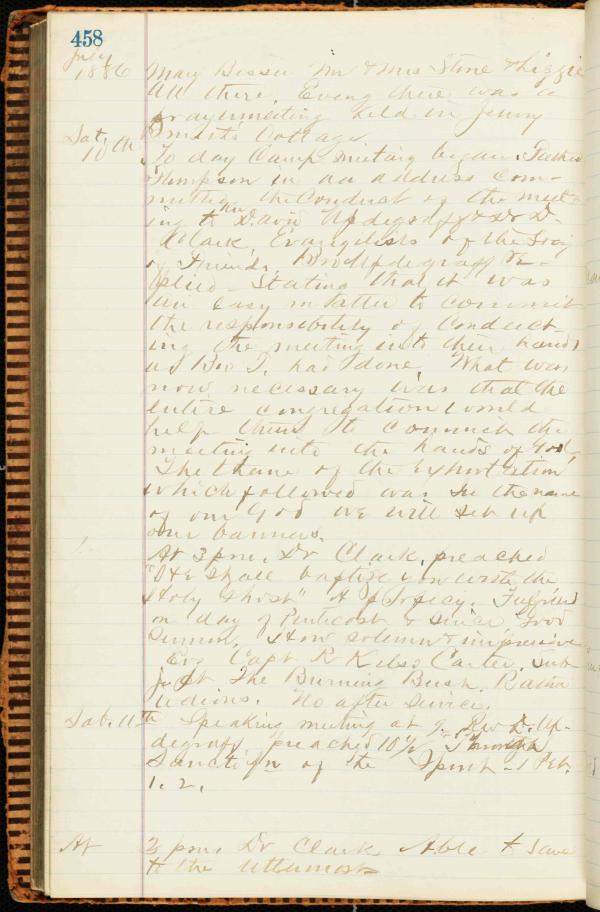 458
July
1886 Mary Mr & Mrs Stone & Lizzie
All there. Eveng there was a
prayermeeting held in Jenny
Smith's Cottage
Sat. 10th To day Camp meeting began. Father
Thompson in an address com-
mitted the Conduct of the meet-
ing to Rev David Updegraff & Dr D.
Clark, Evangelists of the Socy
of Friends. Bro Updegraff re-
plied - Stating that it was
an easy matter to commit
the responsibility of Conduct-
ing the meeting into their hands
as Bro T. had done. What was
now necessary was that the
entire congregation would
help them to commit the
meeting into the hands of God.
The theme of the exhortation
which followed was In the name
of our God we will set up
our banners.
At 3 pm. Dr Clark, preached
"He shall baptize you with the
Holy Ghost" A prophecy. Fulfilled
on day of Pentecost & since. Good
Sermon. How solemn & impressive
Evg Capt R Kelso Carter. Sub-
ject The Burning Bush. Rather
tedious. No after service.
Sab. 11th Speaking meeting at 9. Rev D. Up-
degraff preached 10½ Through
Sanctifn of the Spirit - 1 Pet.
1. 2.
At 3 pm. Dr Clark Able to save
to the uttermost